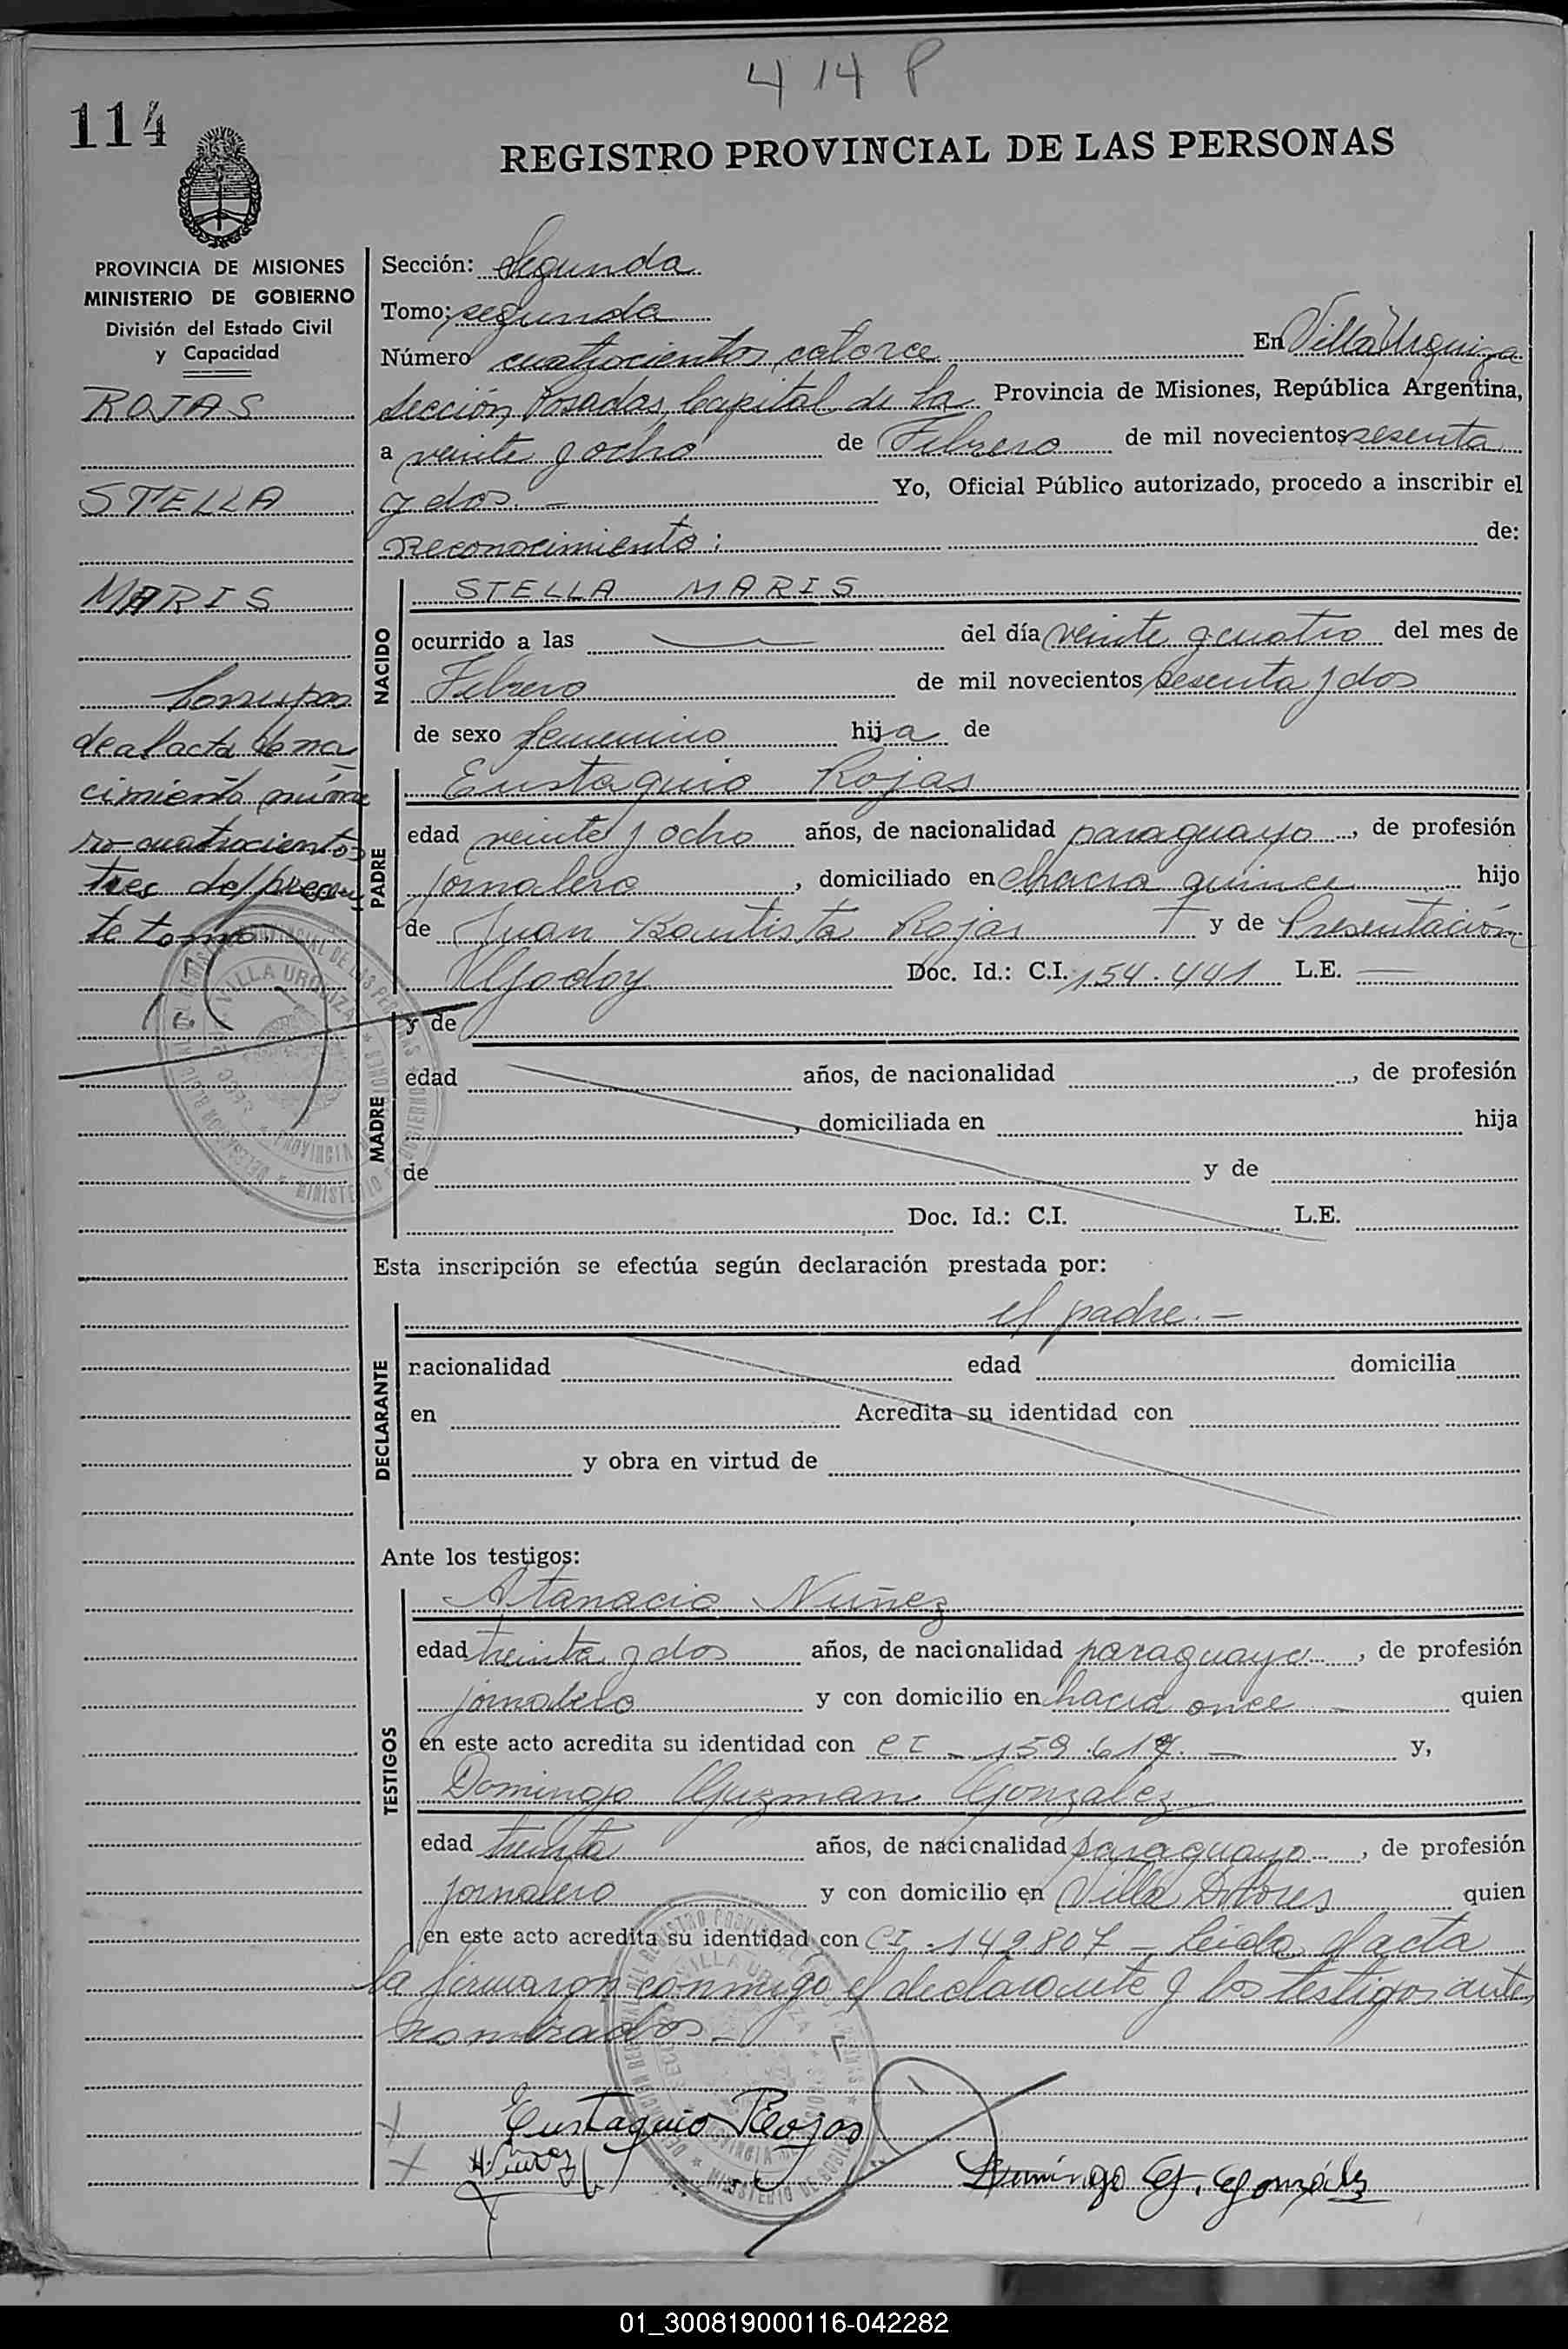 414 P
114
REGISTRO PROVINCIAL DE LAS PERSONAS
PROVINCIA DE MISIONES
MINISTERIO DE GOBIERNO
División del Estado Civil
y Capacidad
ROJAS
STELLA
MARIS
Correspon
de al acta de na
cimiento núme
ro cuatrocientos
tres del presen
te tomo
Sección: Segunda
Tomo: segunda
Número cuatrocientos catorce En Villa Urquiza
Sección, Posadas, Capital de la Provincia de Misiones, República Argentina,
a veinte y ocho de Febrero de mil novecientos sesenta
y dos.- Yo, Oficial Público autorizado, procedo a inscribir el
reconocimiento: de:
NACIDO
STELLA MARIS
ocurrido a las del día veinte y cuatro del mes de
Febrero de mil novecientos sesenta y dos
de sexo femenino hija de
PADRE
Eustaquio Rojas
edad veinte y ocho años, de nacionalidad paraguayo, de profesión
jornalero, domiciliado en chacra quince hijo
de Juan Bautista Rojas y de Presentación
Godoy Doc. Id.: C.I. 154.441 L.E. —
MADRE
y de
edad años, de nacionalidad , de profesión
, domiciliada en hija
de y de
Doc. Id.: C.I. L.E.
Esta inscripción se efectúa según declaración prestada por:
DECLARANTE
el padre.-
nacionalidad edad domicilia
en Acredita su identidad con
y obra en virtud de
Ante los testigos:
TESTIGOS
Atanacio Nuñez
edad treinta y dos años, de nacionalidad paraguayo, de profesión
jornalero y con domicilio en chacra once quien
en este acto acredita su identidad con CI - 159.617.- y,
Domingo Guzman Gonzalez
edad treinta años, de nacionalidad paraguayo, de profesión
jornalero y con domicilio en Villa Dolores quien
en este acto acredita su identidad con CI. 142807 - Leida el acta
la firmaron conmigo el declarante y los testigos antes
nombrados.-
Eustaquio Rojas
A. Nuñez
Domingo G. González
01_300819000116-042282